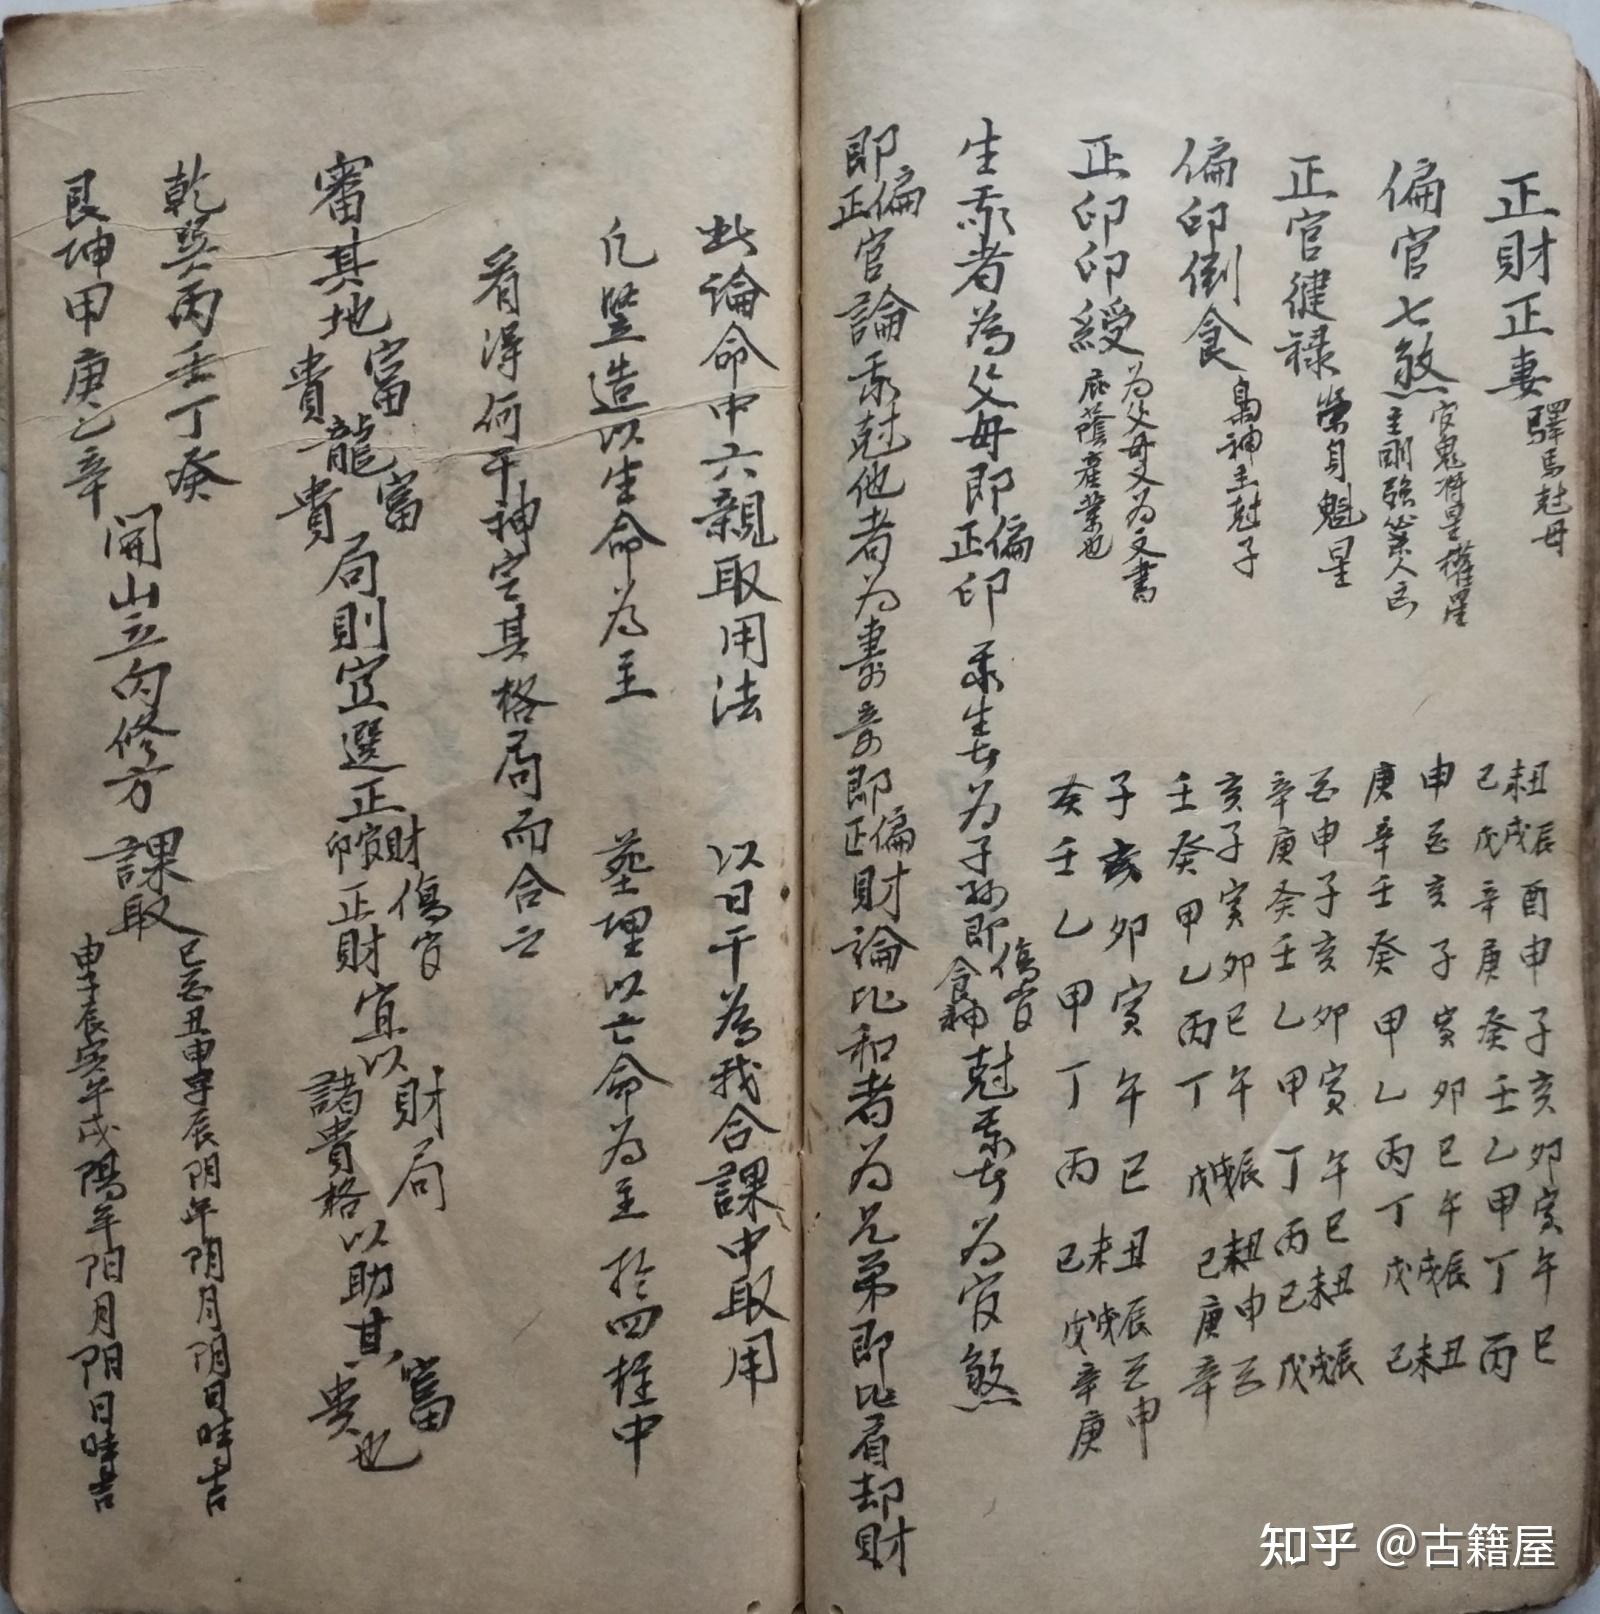 正財正妻 驛馬尅母 己未丑 戊戌辰 辛酉 庚申 癸子 壬亥 乙卯 甲寅 丁午 丙巳
偏官七煞 官鬼將星權星 主剛強 庚申 辛酉 壬亥 癸子 甲寅 乙卯 丙巳 丁午 戊戌辰 己未丑
正官健祿 榮身魁星 辛酉 庚申 癸子 壬亥 乙卯 甲寅 丁午 丙巳 己未丑 戊戌辰
偏印倒食 梟神主尅子 壬亥 癸子 甲寅 乙卯 丙巳 丁午 戊戌辰 己未丑 庚申 辛酉
正印印綬 为父母又为文書 庇蔭產業也 癸子 壬亥 乙卯 甲寅 丁午 丙巳 己未丑 戊戌辰 辛酉 庚申
生我者為父母即偏正印 我生者为子孫即傷官食神 尅我者为官煞
即偏正官論我尅他者为妻財 妻財即偏正財論比和者为兄弟即比肩却財
此論命中六親取用法 以日干為我合課中取用
凡竪造以生命为主 塟埋以亡命为主 於四柱中
看得何干神定其格局而合之
審其地富貴龍富貴局則宜選正財官印傷官正財宜以財局諸貴格以助其富貴也
乾巽丙壬丁癸
艮坤甲庚乙辛
開山立向修方 課取
巳酉丑申子辰阴年阴月阴日時吉
申子辰寅午戌陽年阳月阳日時吉
知乎 @古籍屋